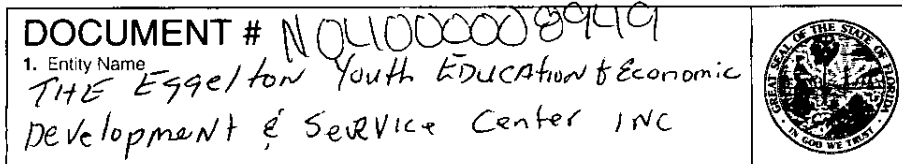 DOCUMENT # N04000008949
1. Entity Name
THE Eggelton Youth EDUCAtion & Economic
Development & SeRVICe Center INC
GREAT SEAL OF THE STATE OF FLORIDA
IN GOD WE TRUST